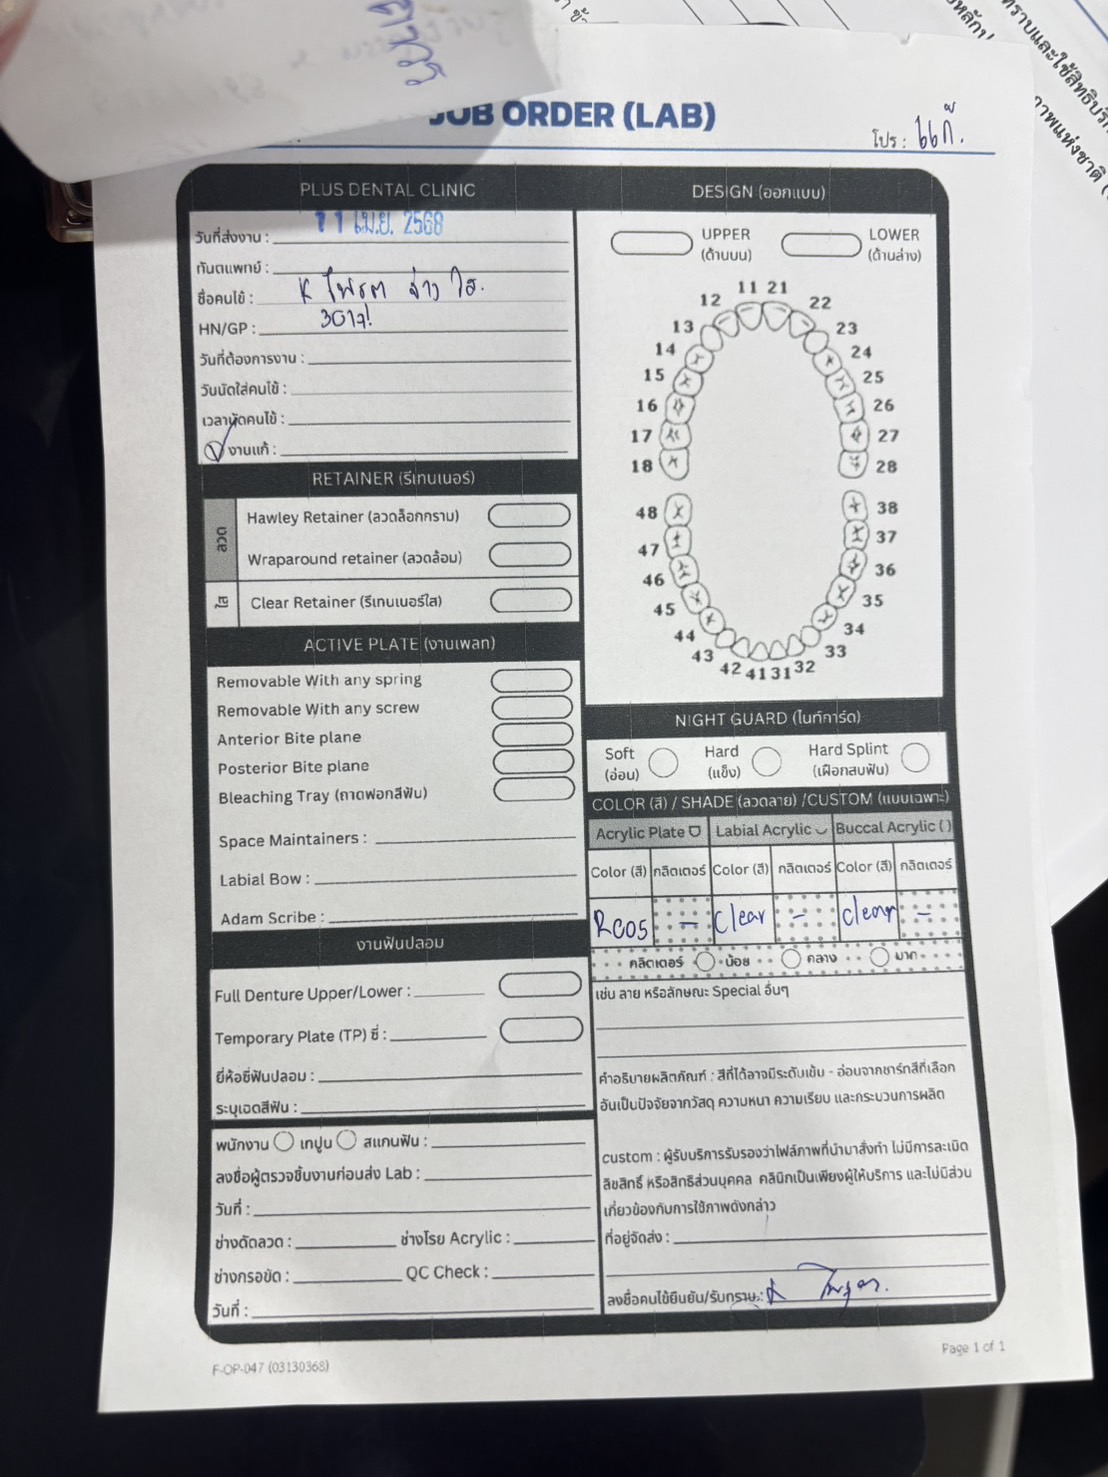 JOB ORDER (LAB)
โปร : แก้.
PLUS DENTAL CLINIC
วันที่ส่งงาน : 11 เม.ย. 2568
ทันตแพทย์ :
ชื่อคนไข้ : K
HN/GP :
วันที่ต้องการงาน :
วันนัดใส่คนไข้ :
เวลานัดคนไข้ :
งานแก้ :
RETAINER (รีเทนเนอร์)
ลวด
Hawley Retainer (ลวดล็อกกราม)
Wraparound retainer (ลวดล้อม)
ใส
Clear Retainer (รีเทนเนอร์ใส)
ACTIVE PLATE (งานเพลท)
Removable With any spring
Removable With any screw
Anterior Bite plane
Posterior Bite plane
Bleaching Tray (ถาดฟอกสีฟัน)
Space Maintainers :
Labial Bow :
Adam Scribe :
งานฟันปลอม
Full Denture Upper/Lower :
Temporary Plate (TP) ซี่ :
ยี่ห้อซี่ฟันปลอม :
ระบุเฉดสีฟัน :
พนักงาน เทปูน สแกนฟัน :
ลงชื่อผู้ตรวจชิ้นงานก่อนส่ง Lab :
วันที่ :
ช่างดัดลวด : ช่างโรย Acrylic :
ช่างกรอขัด : QC Check :
วันที่ :
DESIGN (ออกแบบ)
UPPER LOWER
(ด้านบน) (ด้านล่าง)
11 21
12 22
13 23
14 24
15 25
16 26
17 27
18 28
48 38
47 37
46 36
45 35
44 34
43 33
42 41 31 32
NIGHT GUARD (ไนท์การ์ด)
Soft Hard Hard Splint
(อ่อน) (แข็ง) (เฝือกสบฟัน)
COLOR (สี) / SHADE (ลวดลาย) /CUSTOM (แบบเฉพาะ)
Acrylic Plate Labial Acrylic Buccal Acrylic ( )
Color (สี) กลิตเตอร์ Color (สี) กลิตเตอร์ Color (สี) กลิตเตอร์
RC05 - Clear - Clear -
กลิตเตอร์ น้อย กลาง มาก
เช่น ลาย หรือลักษณะ Special อื่นๆ
คำอธิบายผลิตภัณฑ์ : สีที่ได้อาจมีระดับเข้ม - อ่อนจากชาร์ทสีที่เลือก
อันเป็นปัจจัยจากวัสดุ ความหนา ความเรียบ และกระบวนการผลิต
custom : ผู้รับบริการรับรองว่าไฟล์ภาพที่นำมาสั่งทำ ไม่มีการละเมิด
ลิขสิทธิ์ หรือสิทธิส่วนบุคคล คลินิกเป็นเพียงผู้ให้บริการ และไม่มีส่วน
เกี่ยวข้องกับการใช้ภาพดังกล่าว
ที่อยู่จัดส่ง :
ลงชื่อคนไข้ยืนยัน/รับทราบ :
F-OP-047 (03130368)
Page 1 of 1